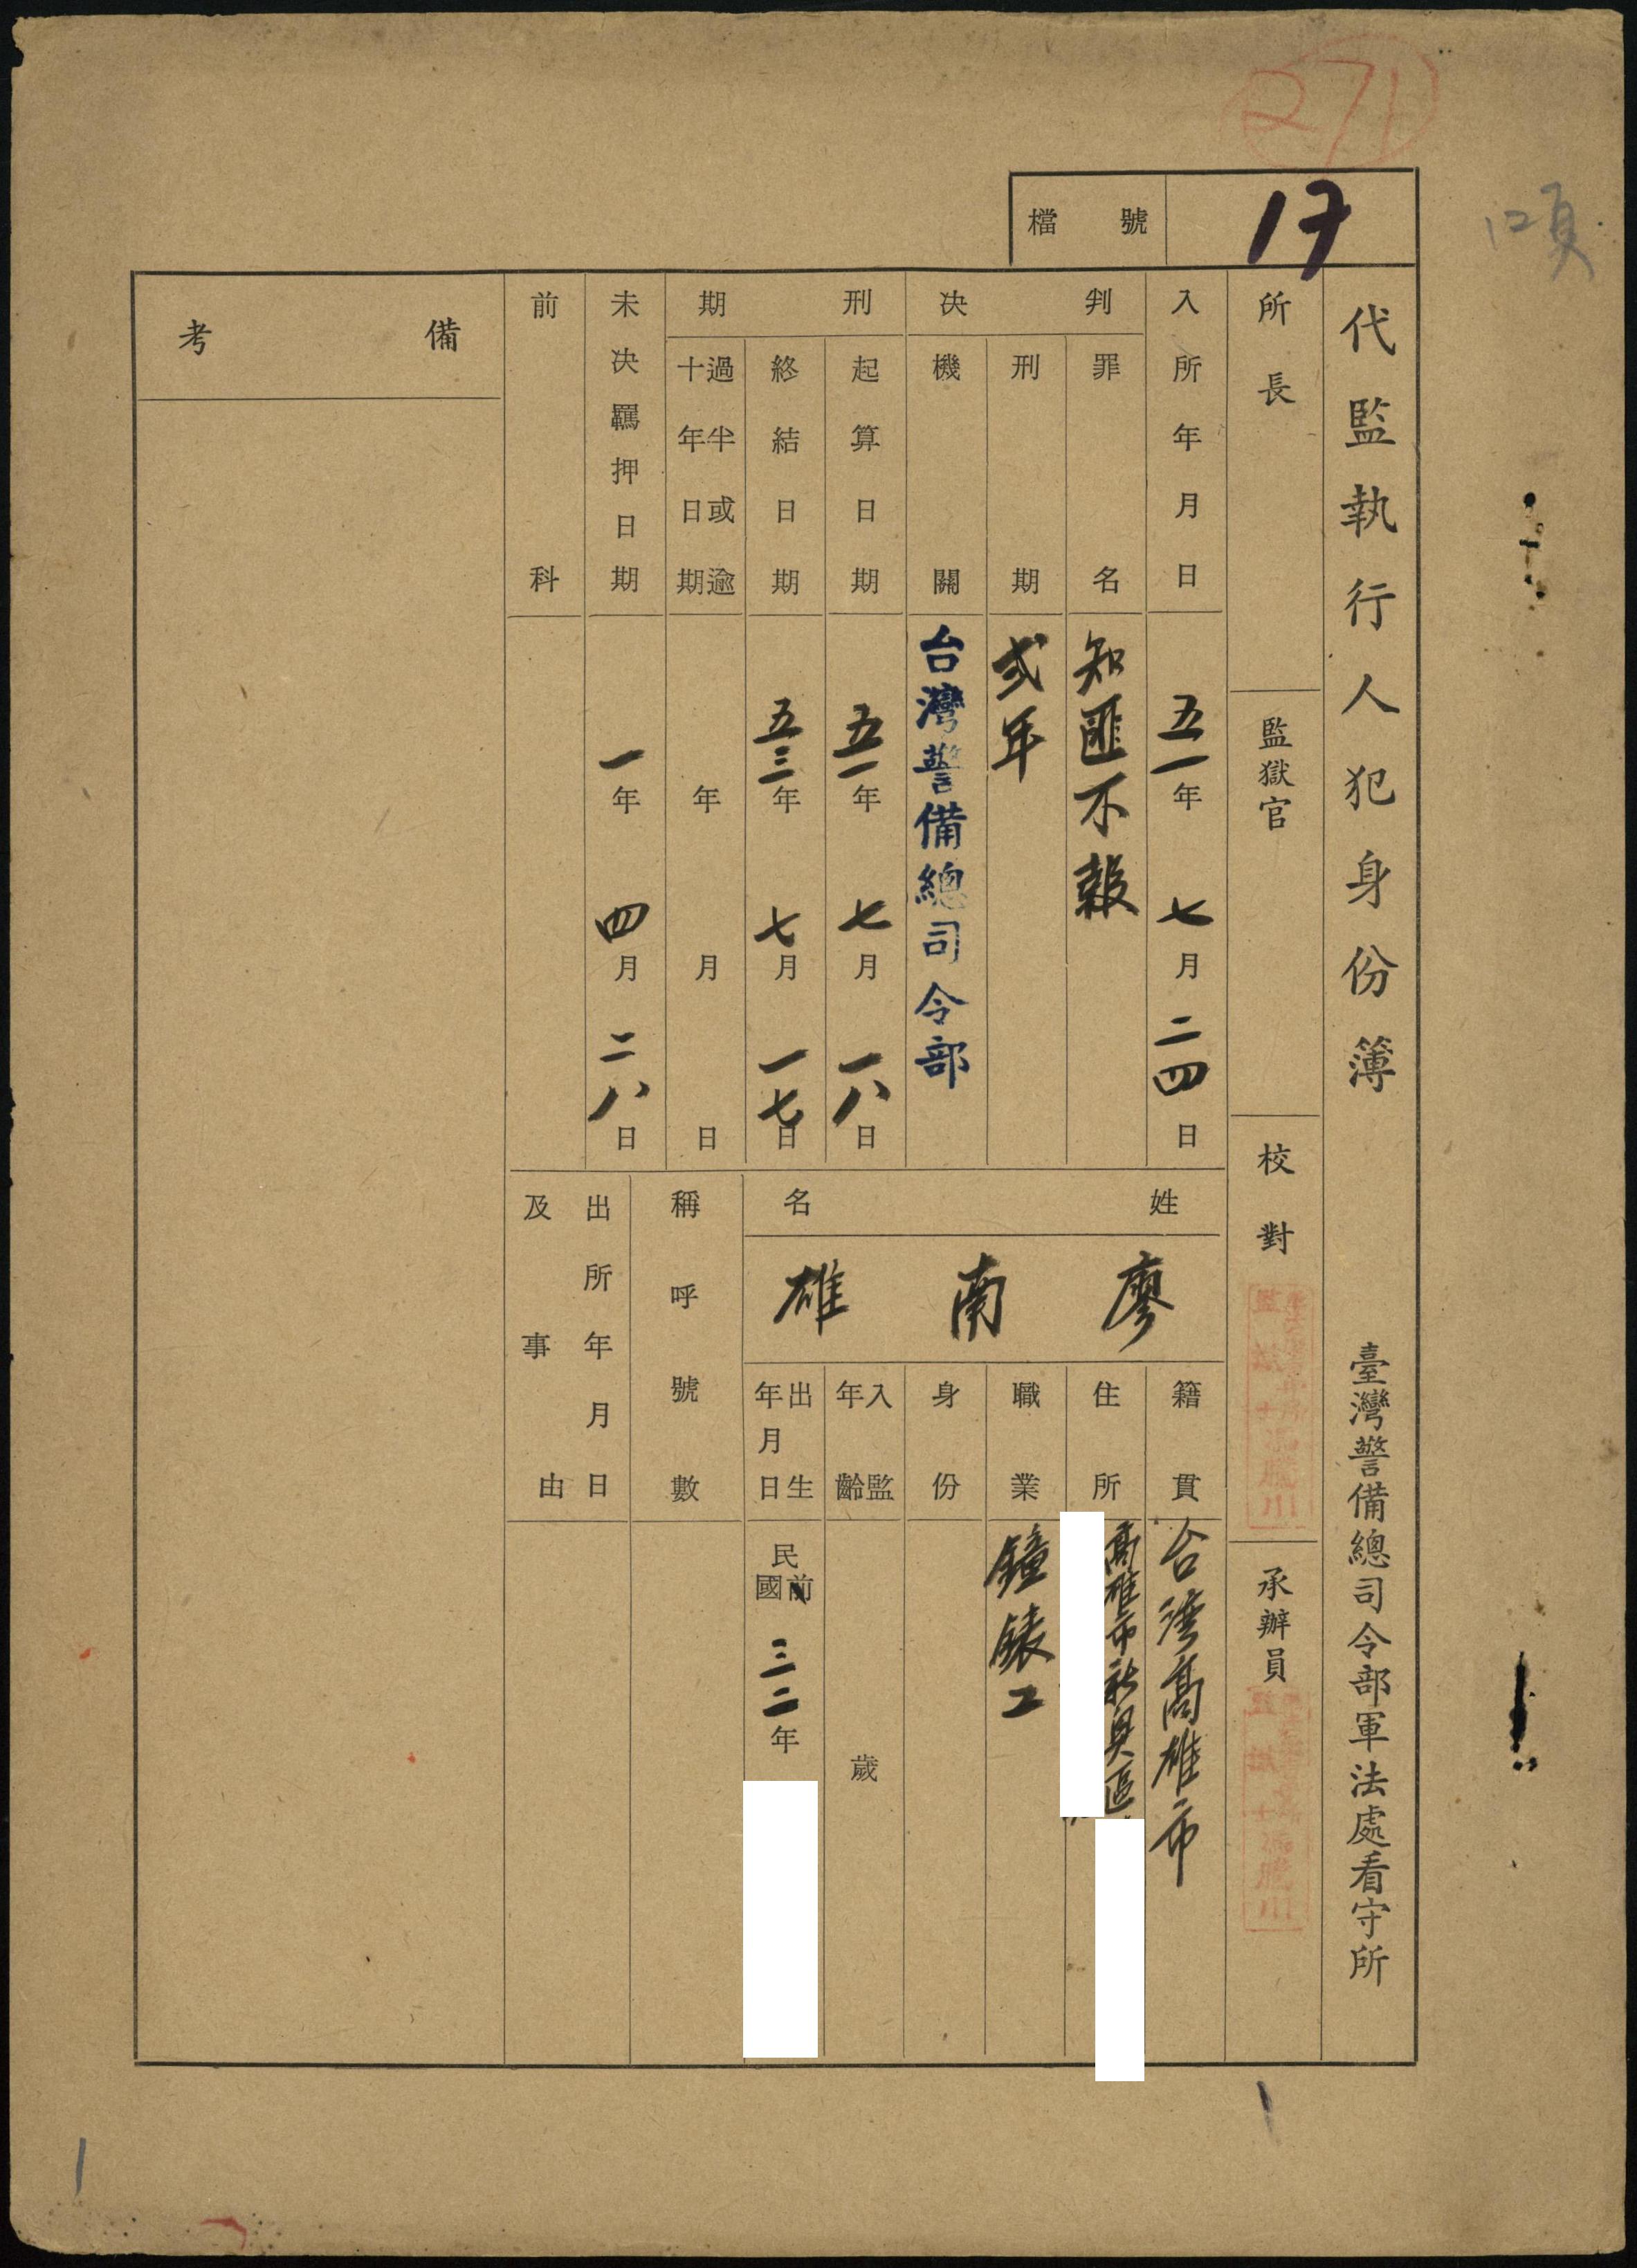 271
項
檔號 17
代監執行人犯身份簿 臺灣警備總司令部軍法處看守所
所長
監獄官
校對
承辦員
入所年月日 五一年七月二四日
判決
罪名 知匪不報
刑期 弍年
機關 台灣警備總司令部
刑期
起算日期 五一年七月一八日
終結日期 五三年七月一七日
過半或逾十年日期 年月日
未決羈押日期 一年四月二八日
前科
姓名
廖南雄
籍貫 台灣高雄市
住所 高雄市新興區
職業 鐘錶工
身份
入監年齡 歲
出生年月日 民國前三二年
稱呼號數
出所年月日及事由
備考